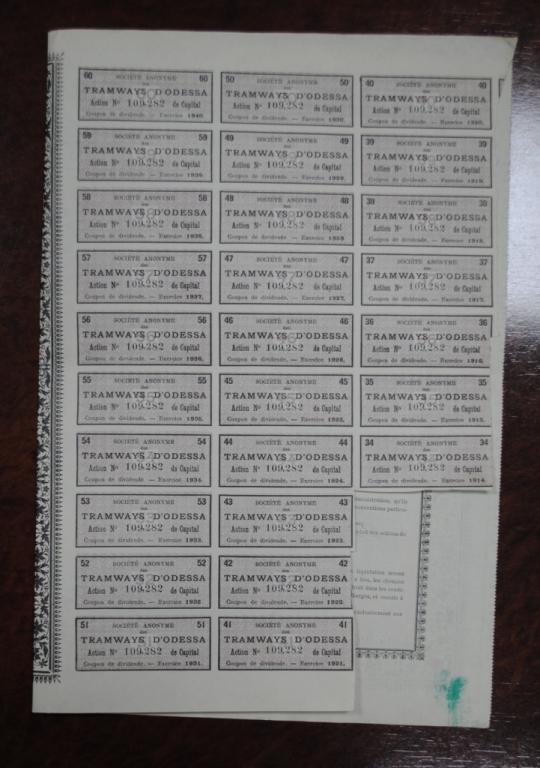 60 SOCIÉTÉ ANONYME 60
des
TRAMWAYS D'ODESSA
Action Nº 109,282 de Capital
Coupon de dividende. — Exercice 1940.
50 SOCIÉTÉ ANONYME 50
des
TRAMWAYS D'ODESSA
Action Nº 109,282 de Capital
Coupon de dividende. — Exercice 1930.
40 SOCIÉTÉ ANONYME 40
des
TRAMWAYS D'ODESSA
Action Nº 109,282 de Capital
Coupon de dividende. — Exercice 1920.
59 SOCIÉTÉ ANONYME 59
des
TRAMWAYS D'ODESSA
Action Nº 109,282 de Capital
Coupon de dividende. — Exercice 1939.
49 SOCIÉTÉ ANONYME 49
des
TRAMWAYS D'ODESSA
Action Nº 109,282 de Capital
Coupon de dividende. — Exercice 1929.
39 SOCIÉTÉ ANONYME 39
des
TRAMWAYS D'ODESSA
Action Nº 109,282 de Capital
Coupon de dividende. — Exercice 1919.
58 SOCIÉTÉ ANONYME 58
des
TRAMWAYS D'ODESSA
Action Nº 109,282 de Capital
Coupon de dividende. — Exercice 1938.
48 SOCIÉTÉ ANONYME 48
des
TRAMWAYS D'ODESSA
Action Nº 109,282 de Capital
Coupon de dividende. — Exercice 1928
38 SOCIÉTÉ ANONYME 38
des
TRAMWAYS D'ODESSA
Action Nº 109,282 de Capital
Coupon de dividende. — Exercice 1918.
57 SOCIÉTÉ ANONYME 57
des
TRAMWAYS D'ODESSA
Action Nº 109,282 de Capital
Coupon de dividende. — Exercice 1937.
47 SOCIÉTÉ ANONYME 47
des
TRAMWAYS D'ODESSA
Action Nº 109,282 de Capital
Coupon de dividende. — Exercice 1927.
37 SOCIÉTÉ ANONYME 37
des
TRAMWAYS D'ODESSA
Action Nº 109,282 de Capital
Coupon de dividende. — Exercice 1917.
56 SOCIÉTÉ ANONYME 56
des
TRAMWAYS D'ODESSA
Action Nº 109,282 de Capital
Coupon de dividende. — Exercice 1936.
46 SOCIÉTÉ ANONYME 46
des
TRAMWAYS D'ODESSA
Action Nº 109,282 de Capital
Coupon de dividende. — Exercice 1926.
36 SOCIÉTÉ ANONYME 36
des
TRAMWAYS D'ODESSA
Action Nº 109,282 de Capital
Coupon de dividende. — Exercice 1916.
55 SOCIÉTÉ ANONYME 55
des
TRAMWAYS D'ODESSA
Action Nº 109,282 de Capital
Coupon de dividende. — Exercice 1935.
45 SOCIÉTÉ ANONYME 45
des
TRAMWAYS D'ODESSA
Action Nº 109,282 de Capital
Coupon de dividende. — Exercice 1925.
35 SOCIÉTÉ ANONYME 35
des
TRAMWAYS D'ODESSA
Action Nº 109,282 de Capital
Coupon de dividende. — Exercice 1915.
54 SOCIÉTÉ ANONYME 54
des
TRAMWAYS D'ODESSA
Action Nº 109,282 de Capital
Coupon de dividende. — Exercice 1934
44 SOCIÉTÉ ANONYME 44
des
TRAMWAYS D'ODESSA
Action Nº 109,282 de Capital
Coupon de dividende. — Exercice 1924.
34 SOCIÉTÉ ANONYME 34
des
TRAMWAYS D'ODESSA
Action Nº 109,282 de Capital
Coupon de dividende. — Exercice 1914.
53 SOCIÉTÉ ANONYME 53
des
TRAMWAYS D'ODESSA
Action Nº 109,282 de Capital
Coupon de dividende. — Exercice 1933.
43 SOCIÉTÉ ANONYME 43
des
TRAMWAYS D'ODESSA
Action Nº 109,282 de Capital
Coupon de dividende. — Exercice 1923.
52 SOCIÉTÉ ANONYME 52
des
TRAMWAYS D'ODESSA
Action Nº 109,282 de Capital
Coupon de dividende. — Exercice 1932
42 SOCIÉTÉ ANONYME 42
des
TRAMWAYS D'ODESSA
Action Nº 109,282 de Capital
Coupon de dividende. — Exercice 1922.
51 SOCIÉTÉ ANONYME 51
des
TRAMWAYS D'ODESSA
Action Nº 109,282 de Capital
Coupon de dividende. — Exercice 1931.
41 SOCIÉTÉ ANONYME 41
des
TRAMWAYS D'ODESSA
Action Nº 109,282 de Capital
Coupon de dividende. — Exercice 1921.
qu'ils
particu-
actions de
liquidation seront
lieu, les